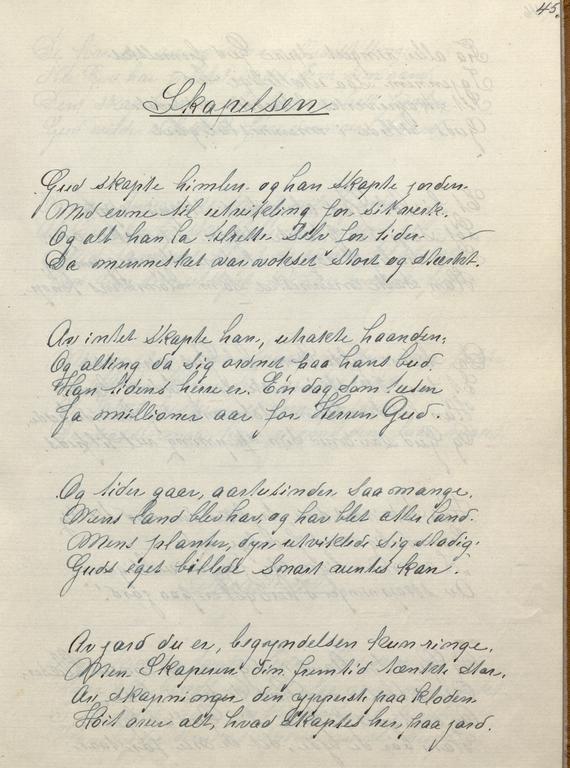 45.
Skapelsen
Gud skapte himlen og han skapte jorden.
Med evne til utvikling for sit verk.
Og alt han la tilrette Selv for tider
Da mennesket var vokset stort og stærkt.
Av intet skapte han, utrakte haanden,
Og alting da sig ordnet paa hans bud.
Han tidens herre er. En dag som tusen
Ja millioner aar for Herren Gud.
Og tider gaar, aartusinder saa mange.
Mens land blev hav, og hav blet atter land.
Mens planter, dyr utviklede sig stadig.
Guds eget billede snart ventes kan.
Av jord du er, begyndelsen kun ringe.
Men Skaperen din fremtid tænkte stor.
Av skapninger den ypperste paa kloden
Høit over alt, hvad skaptes her paa jord.